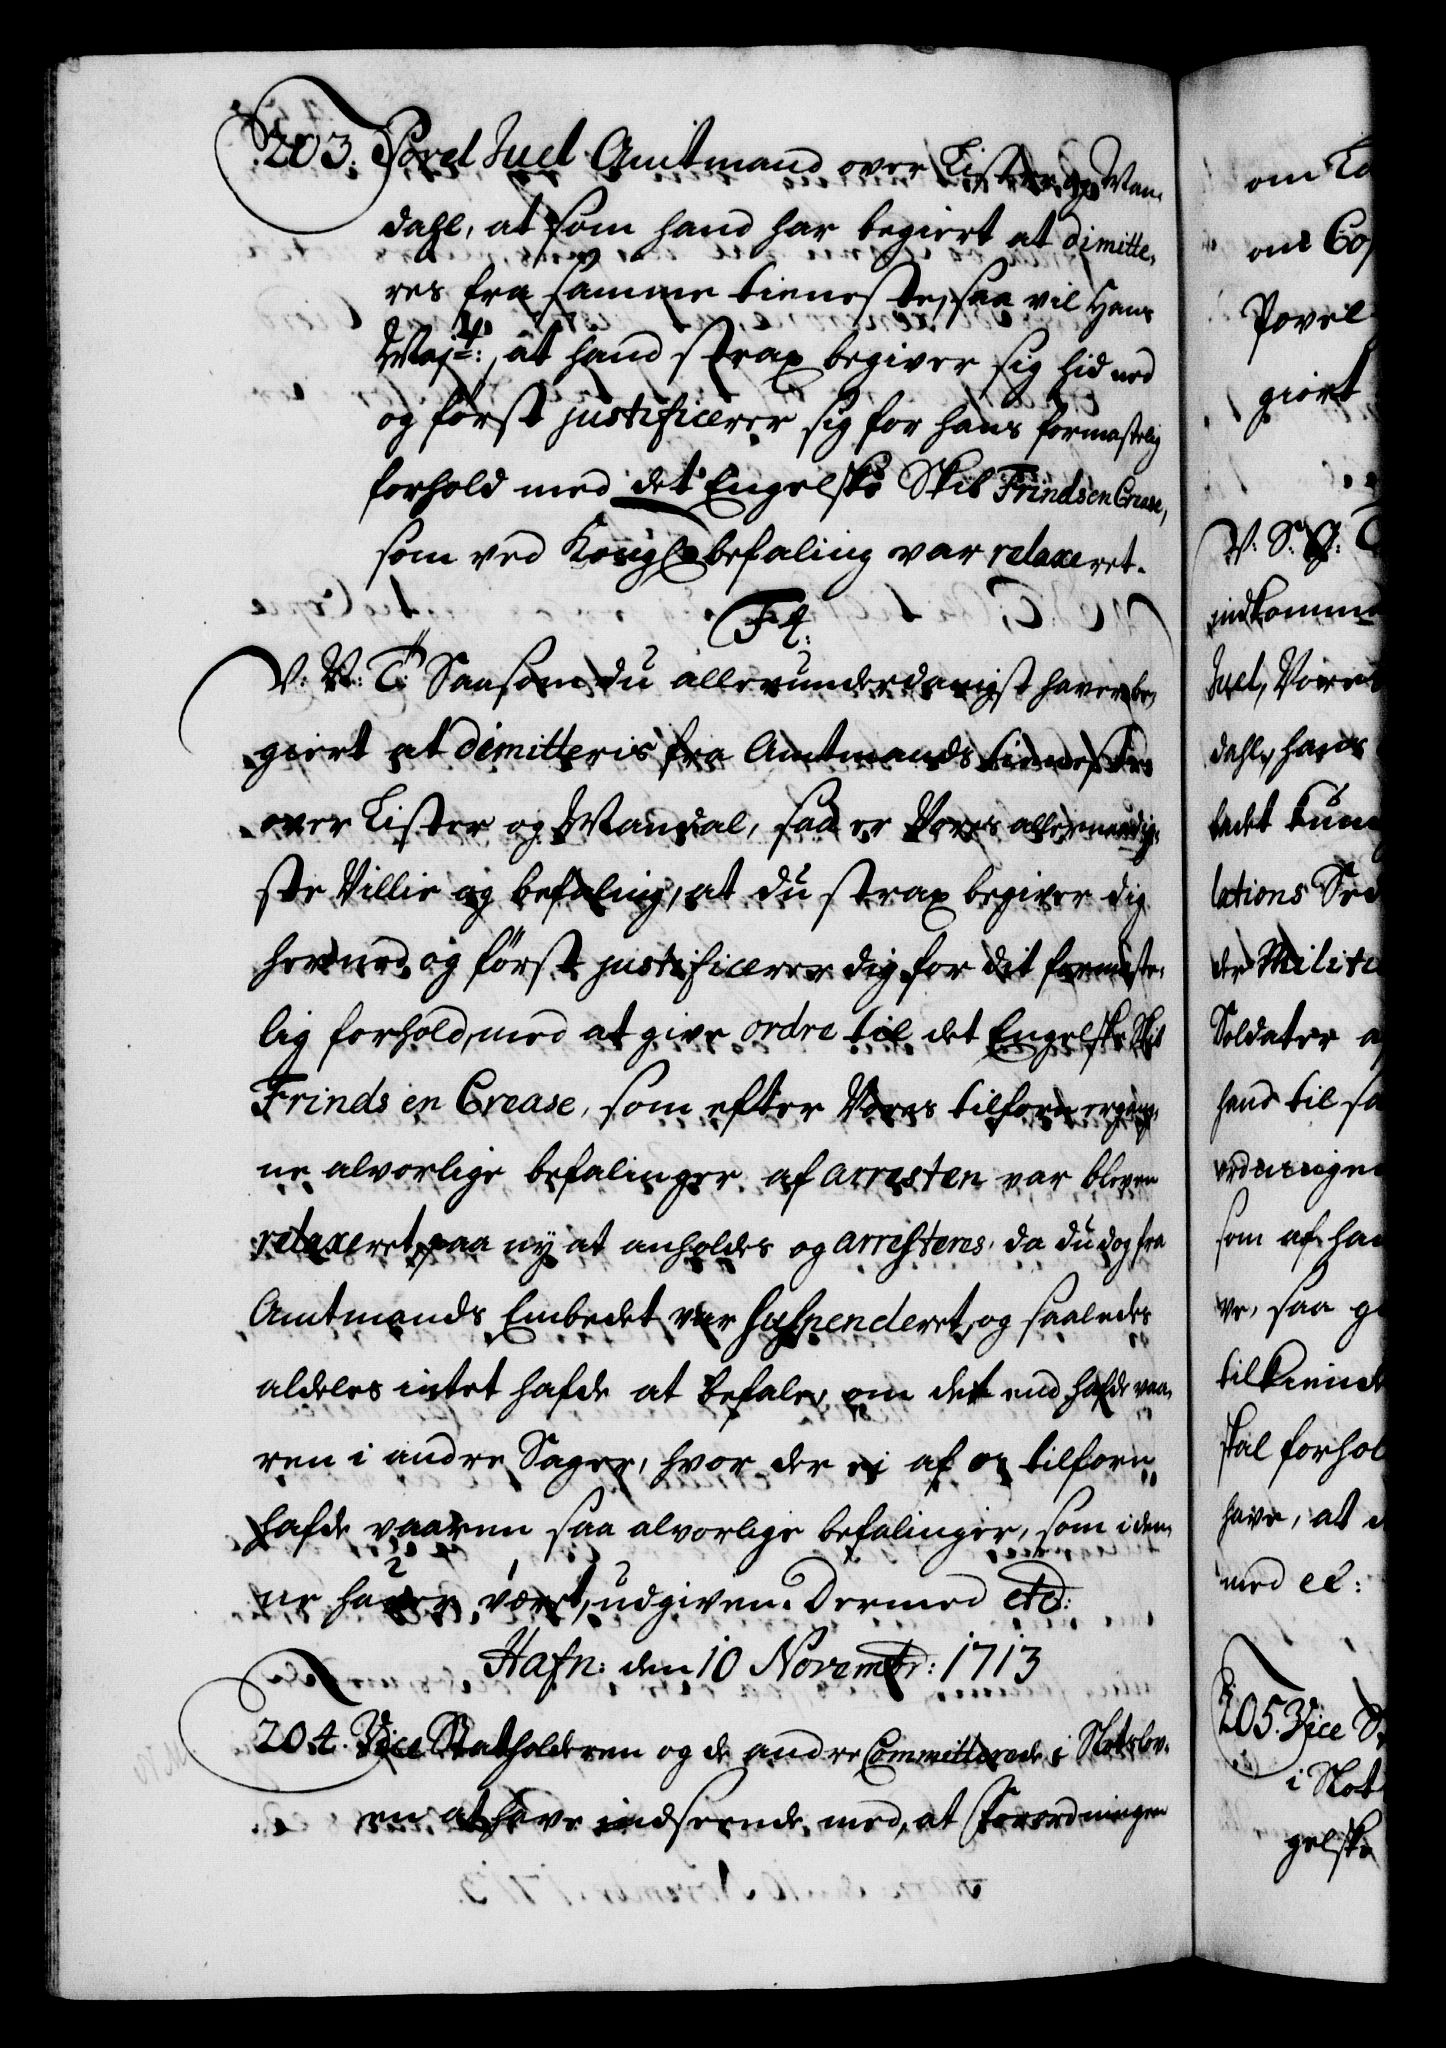 203. Povel Juel Amtmand over Lister og Man-
dahl, at som hand har begiert at dimitte-
res fra samme tieneste, saa vil Hans
Majt:, at hand strax begiver sig hid ned
og först justificerer sig for hans formastelig
forhold med det Engelske Skib Frinds en Crease,
som ved Kongl. befaling var relaxeret.
F4.
V: V: T: Saasom du allerunderdanigst haver be-
giert at dimitteris fra Amtmands tienesten
over Lister og Mandal, saa er Vores allernaadig-
ste Villie og befaling, at du strax begiver dig
herned og först justificerer dig for dit formaste-
lig forhold, med at give ordre til det Engelske Skib
Frinds en Crease, som efter Vores tilforn ergang-
ne alvorlige befalinger af arresten var bleven
relaxeret, paa ny at anholdes og arresteres, da du dog fra
Amtmands Embedet var suspenderet, og saaledes
aldeles intet hafde at befale, om det end hafde vaa-
ren i andre Sager, hvor der ei af os tilforn
hafde vaaren saa alvorlige befalinger, som i den-
ne haver været, udgiven. Dermed etc:
Hafn: den 10 Novembr: 1713
204. Vice Statholderen og de andre Committerede i Slotslov-
en at have indseende med, at Forordningen
om
om
Povel
giort
V: S: G:
indkomme
Juel, Vores
dahl, hans
lations
der Milit
Soldater
hand til
som af
ve, saa
tilkiende
skal forhol
have, at
med
205. Vice
i Slot
gelske